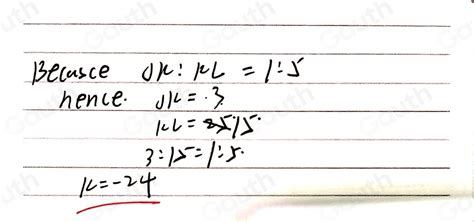 Becasce JK : KL = 1:5
hence. JK = 3
KL = 15.
3:15 = 1:5.
K = -24